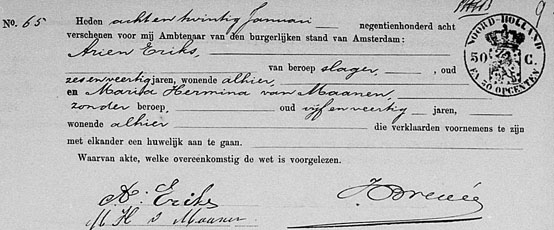 No. 65
Heden acht en twintig Januari negentienhonderd acht
verschenen voor mij Ambtenaar van den burgerlijken stand van Amsterdam:
Arien Eriks,
van beroep slager, oud
zes en veertig jaren, wonende alhier,
en Maria Hermina van Maanen,
zonder beroep, oud vijf en veertig jaren,
wonende alhier die verklaarden voornemens te zijn
met elkander een huwelijk aan te gaan.
Waarvan akte, welke overeenkomstig de wet is voorgelezen.
NOORD-HOLLAND
50 C.
EN 30 OPCENTEN
9
A: Eriks
M H v Maanen